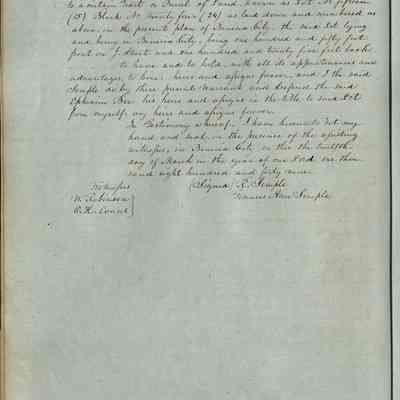 to a certain Tract or Parcel of Land, known as Lot No. fifteen
(15) Block No. twenty four (24) as laid down and numbered as
above, in the present plan of Benicia City, the said Lot lying
and being in Benicia City, being one hundred and fifty feet
front on J Street and one hundred and twenty five feet back
to have and to hold, with all its appurtenances and
advantages, to him heirs and assigns forever, and I the said
Semple do by these presents Warrant and defend the said
Ephraim his heirs and assigns in the title to said Lot
from myself, my heirs and assigns forever.
In Testimony whereof I have hereunto set my
hand and seal, in the presence of the
witnesses, in Benicia City, on this the twelfth
day of March in the year of our Lord one thou
sand eight hundred and forty nine.
Witnesses (Signed) R. Semple
W. Robinson Frances Ann Semple